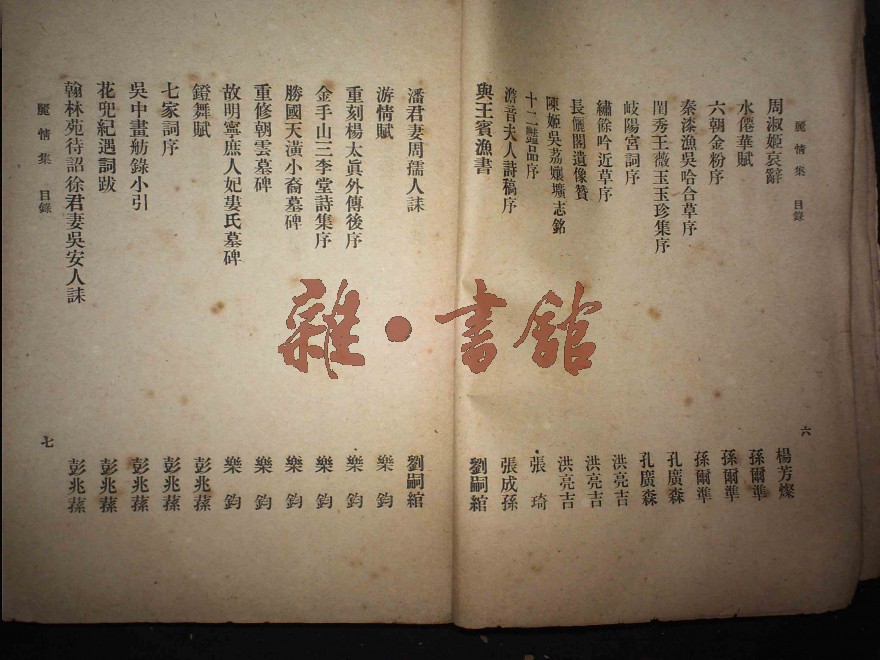 麗情集 目錄
六
周淑姬哀辭 楊芳燦
水僊華賦 孫爾準
六朝金粉序 孫爾準
秦漆漁吳哈合草序 孫爾準
閨秀王薇玉玉珍集序 孔廣森
岐陽宮詞序 孔廣森
繡餘吟近草序 洪亮吉
長儷閣遺像贊 洪亮吉
陳姬吳荔孃壙志銘 洪亮吉
十二豔品序 張琦
澹音夫人詩稿序 張成孫
與王賓漁書 劉嗣綰
潘君妻周孺人誄 劉嗣綰
游情賦 樂鈞
重刻楊太眞外傳後序 樂鈞
金手山三李堂詩集序 樂鈞
勝國天潢小裔墓碑 樂鈞
重修朝雲墓碑 樂鈞
故明寧庶人妃婁氏墓碑 樂鈞
鐙舞賦 彭兆蓀
七家詞序 彭兆蓀
吳中畫舫錄小引 彭兆蓀
花兜紀遇詞跋 彭兆蓀
翰林苑待詔徐君妻吳安人誄 彭兆蓀
麗情集 目錄
七
雜·書館